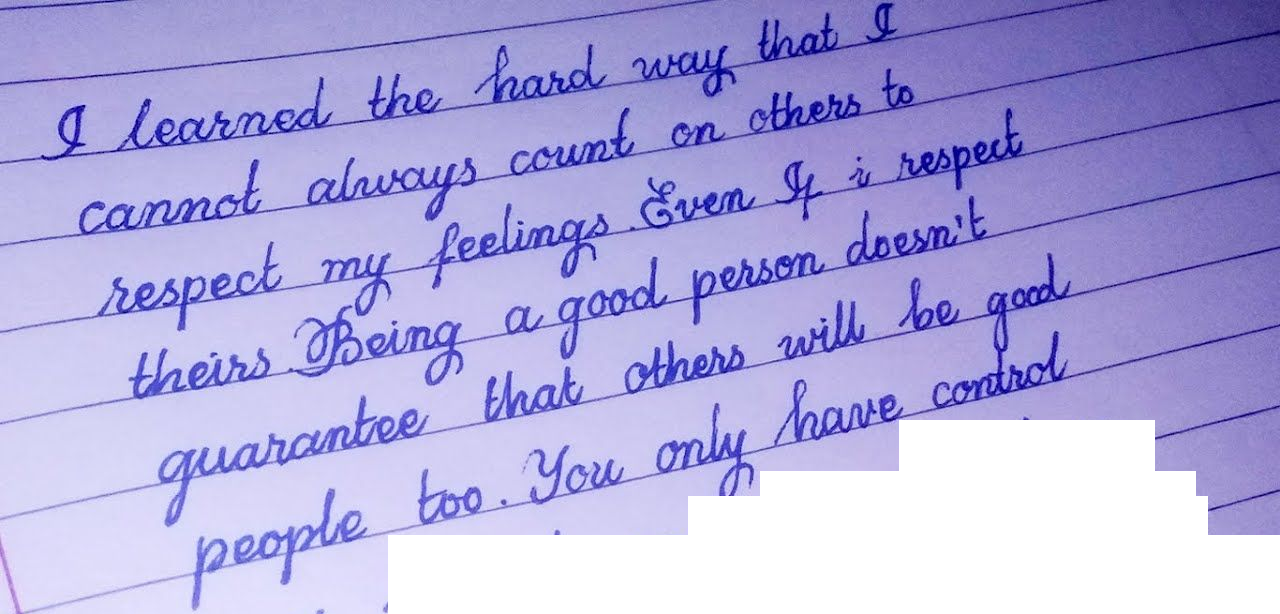 I learned the hard way that I
cannot always count on others to
respect my feelings. Even If i respect
theirs. Being a good person doesn't
guarantee that others will be good
people too. You only have control